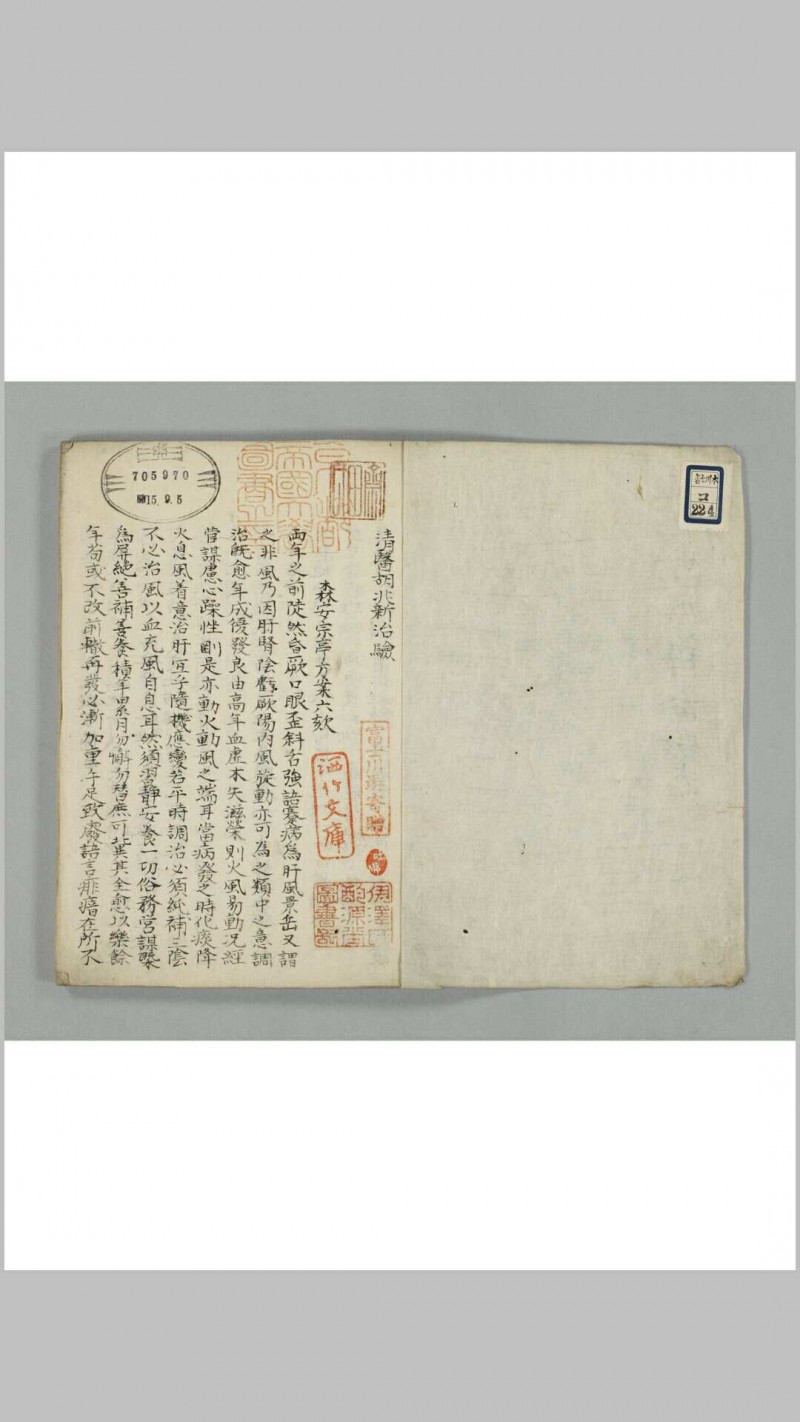 清醫胡兆新治驗
森安宗亭方案六欬
両年之前陡然昏厥口眼歪斜舌強語蹇病為肝風景岳又謂
之非風乃因肝腎陰虧厥陽内風旋動亦可為之類中之意調
治既愈年成復發良由高年血虚木失滋榮則火風易動况經
営謀慮心躁性剛是亦動火動風之端耳當病發之時化痰降
火息風着意治肝宜乎隨機應變若平時調治必須純補三陰
不必治風以血充風自息耳然須習静安養一切俗務営謀槩
為屏絶善補善養積年累月勿懈勿替庶可冀其全愈以樂餘
年苟或不改前轍再發必漸加重手足致廢語言瘖在所不
富士川游寄贈
洒竹文庫
伊澤氏
酌源堂
圖書記
705970
15. 9. 5
コ
224